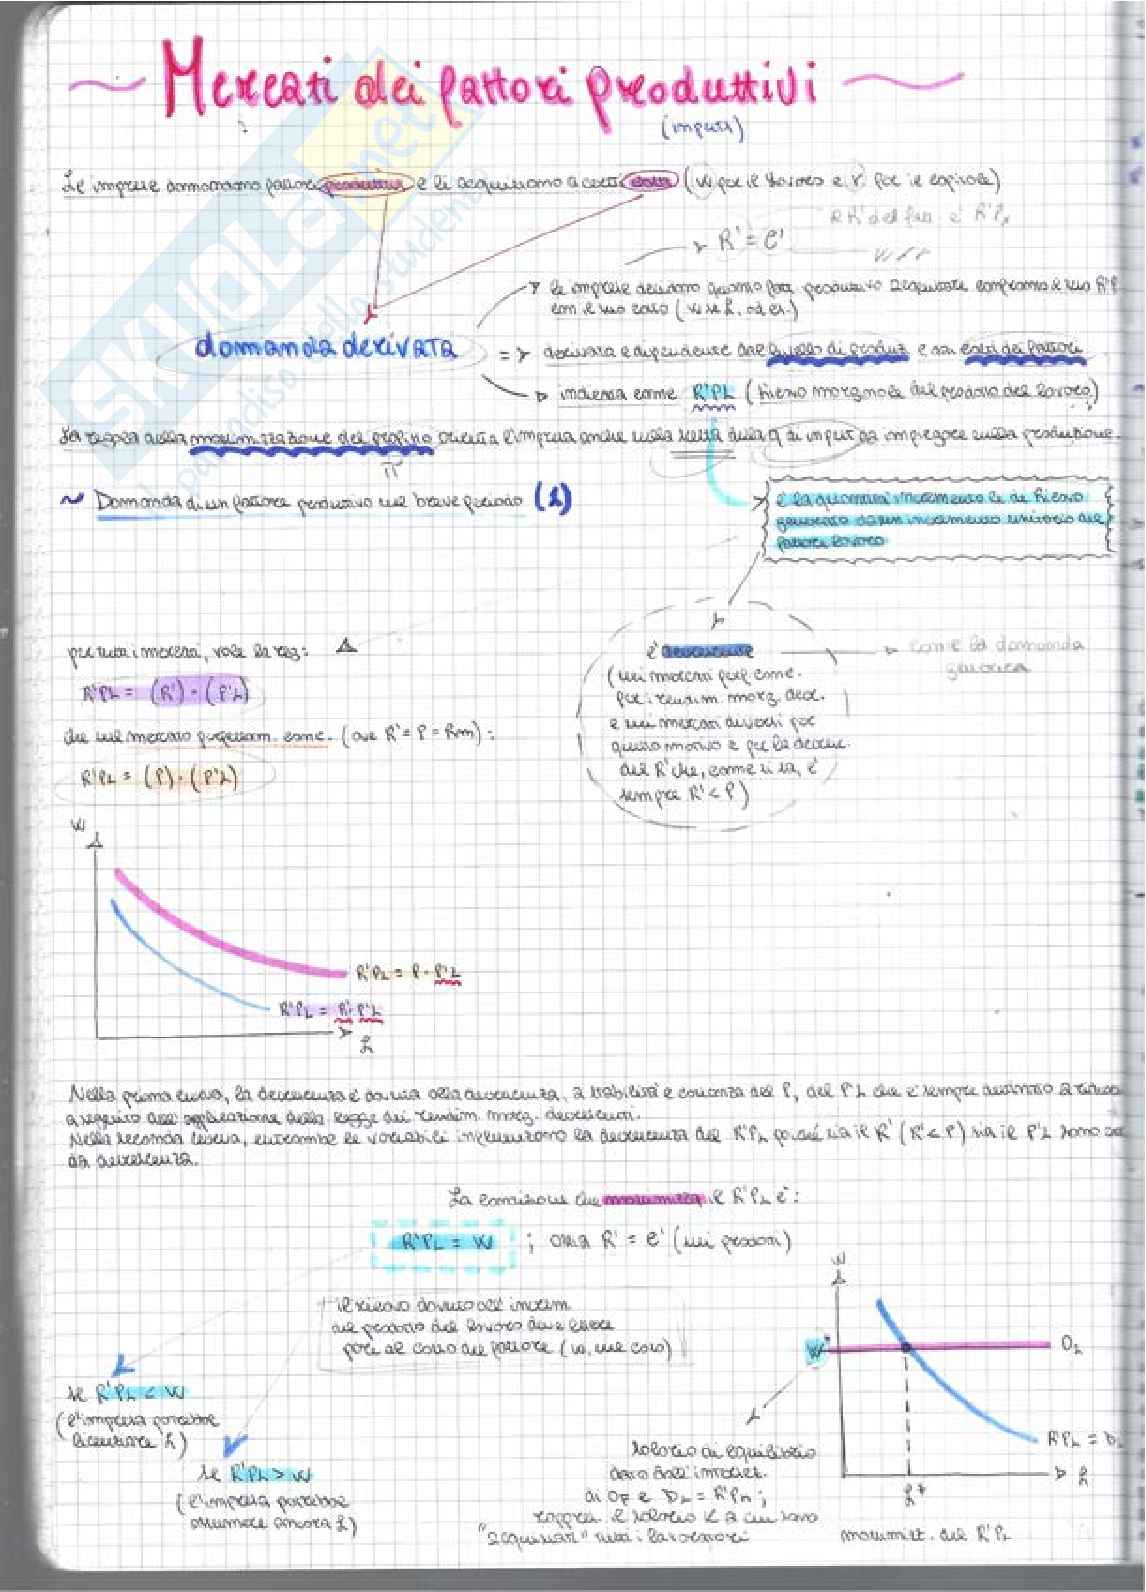 Mercati dei fattori produttivi
(inputs)
Le imprese domandano fattori produttivi e li acquistano a certi costi (W per il lavoro e r per il capitale)
R' = C'
le imprese decidono quanto fatt. produttivo acquistare confrontando il suo
con il suo costo (w se L, ad es.)
domanda derivata
=> derivata e dipendente dal livello di produz e dai costi dei fattori
indicata come R'PL (ricavo marginale del prodotto del lavoro)
La regola della massimizzazione del profitto orienta l'impresa anche nella scelta della q di input da impiegare nella produzione.
π
~ Domanda di un fattore produttivo nel breve periodo (L)
è la quantità incrementale di ricavo
generato da un incremento unitario del
fattore lavoro
è decrescente
(nei mercati perf. conc.
per i rendim. marg. decr.
e nei mercati diversi per
questo motivo e per la decresc.
del R' che, come si sa, è
sempre R' < P)
come la domanda
generica
per tutti i mercati, vale la reg:
R'PL = (R') · (P'L)
che nel mercato perfettam. conc. (ove R' = P = Rm):
R'PL = (P) · (P'L)
W
R'PL = P · P'L
R'PL = R' · P'L
L
Nella prima curva, la decrescenza è dovuta alla decrescenza, a stabilità e costanza del P, del P'L che è sempre destinato a ridursi
a seguito dell'applicazione della legge dei rendim. marg. decrescenti.
Nella seconda curva, entrambe le variabili influenzano la decrescenza del R'PL poiché sia il R' (R' < P) sia il P'L sono
da decrescenza.
La condizione che massimizza il R'PL è:
R'PL = W ; ossia R' = C' (nei prodotti)
il ricavo dovuto all'increm
del prodotto del lavoro deve essere
pari al costo del fattore (w, nel caso)
se R'PL < W
(l'impresa potrebbe
licenziare L)
se R'PL > W
(l'impresa potrebbe
assumere ancora L)
W
W*
OL
R'PL = DL
L
L*
salario di equilibrio
dato dall'intersez.
di OF e DL = R'PL ;
rappres. il salario W a cui sono
"acquistati" tutti i lavoratori
massimizz. del R'PL
SKUOLA.net
il paradiso dello studente